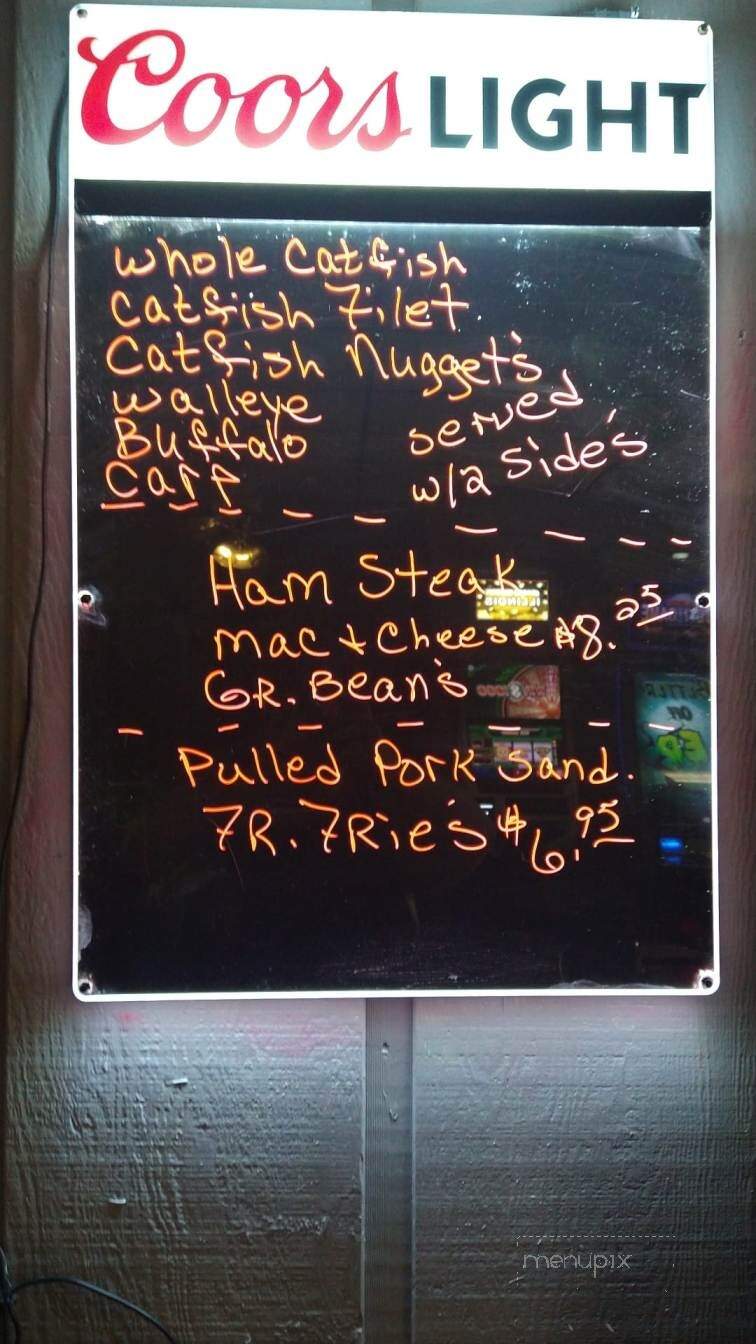 Coors LIGHT
whole Catfish
Catfish Filet
Catfish Nugget's
walleye
Buffalo
Carp
served
w/2 Side's
Ham Steak
Mac + Cheese $8.25
GR. Bean's
Pulled Pork Sand.
FR. FRie's $6.95
ILLINOIS
menupix